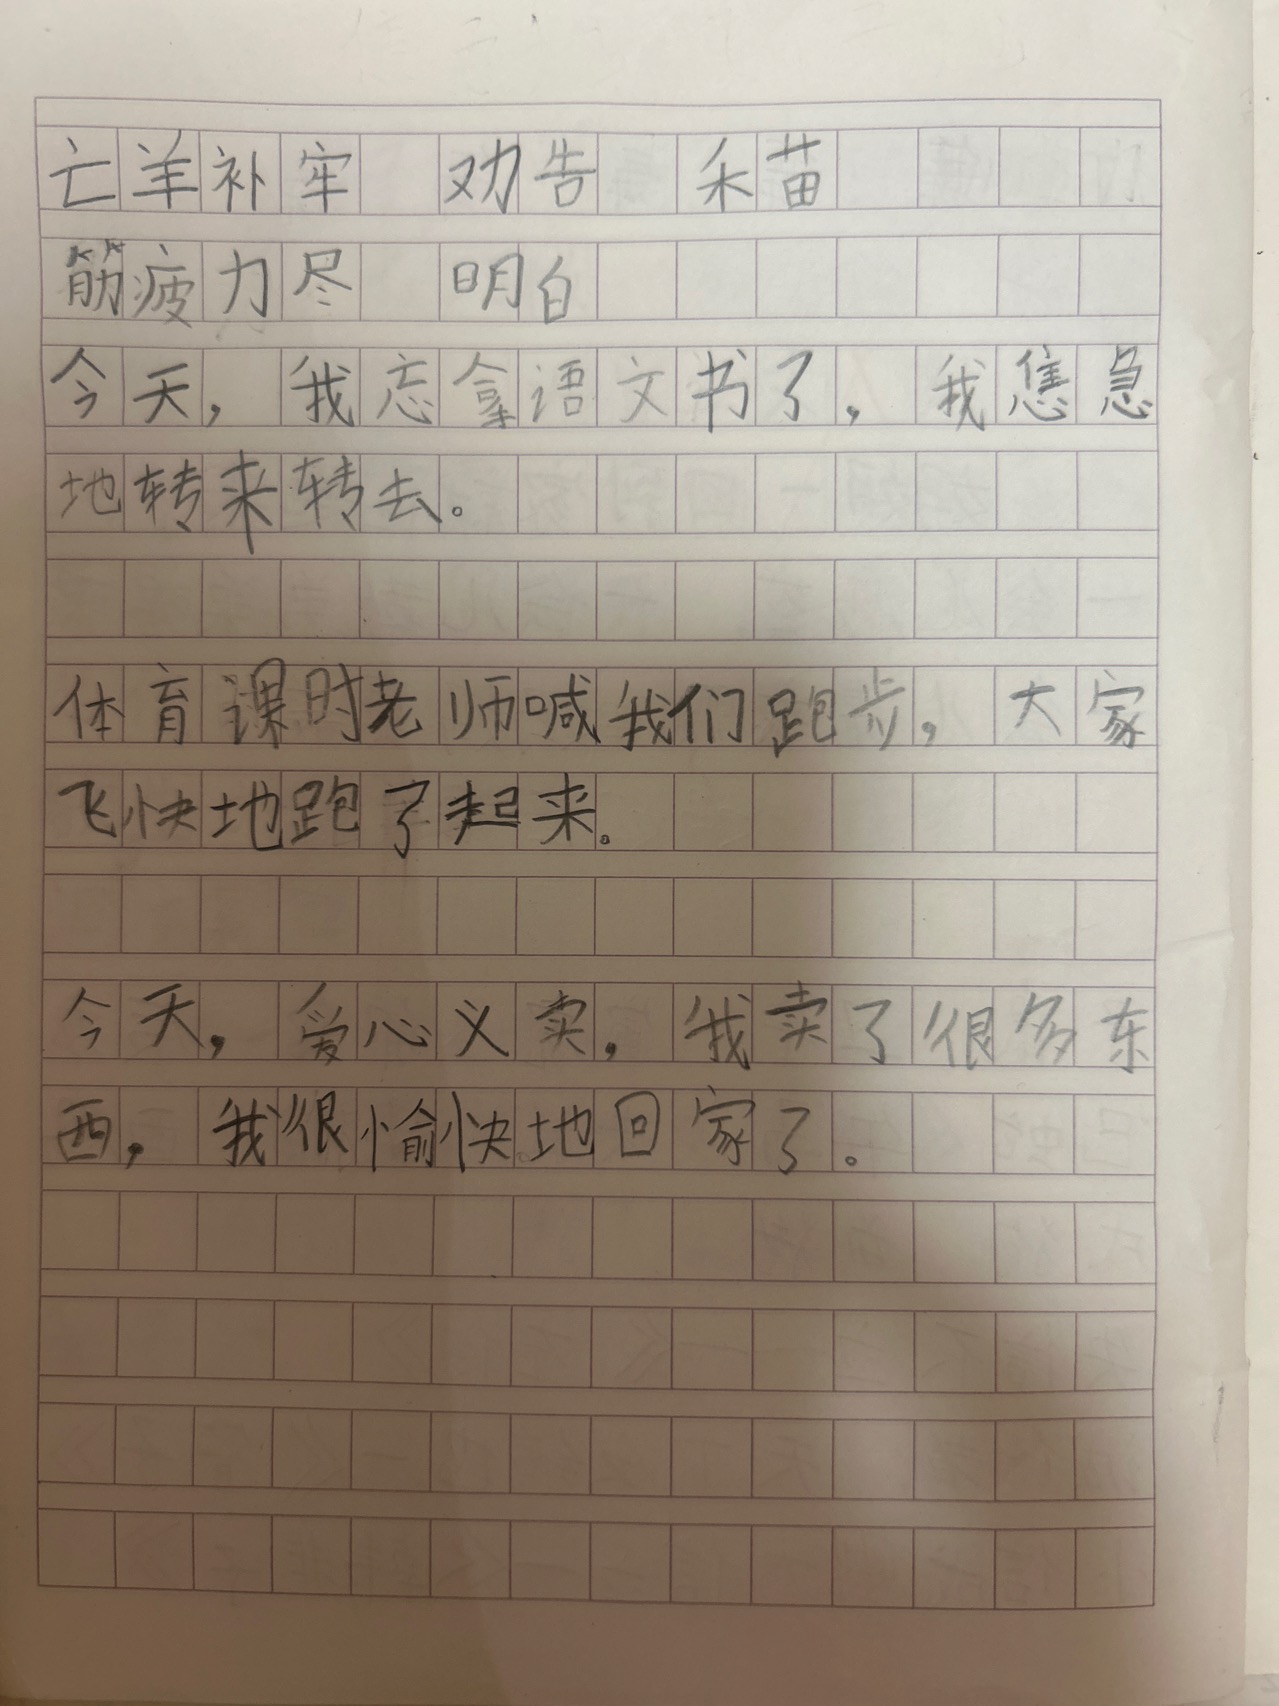 亡羊补牢 劝告 禾苗
筋疲力尽 明白
今天，我忘拿语文书了，我焦急
地转来转去。
体育课时老师喊我们跑步，大家
飞快地跑了起来。
今天，爱心义卖，我卖了很多东
西，我很愉快地回家了。